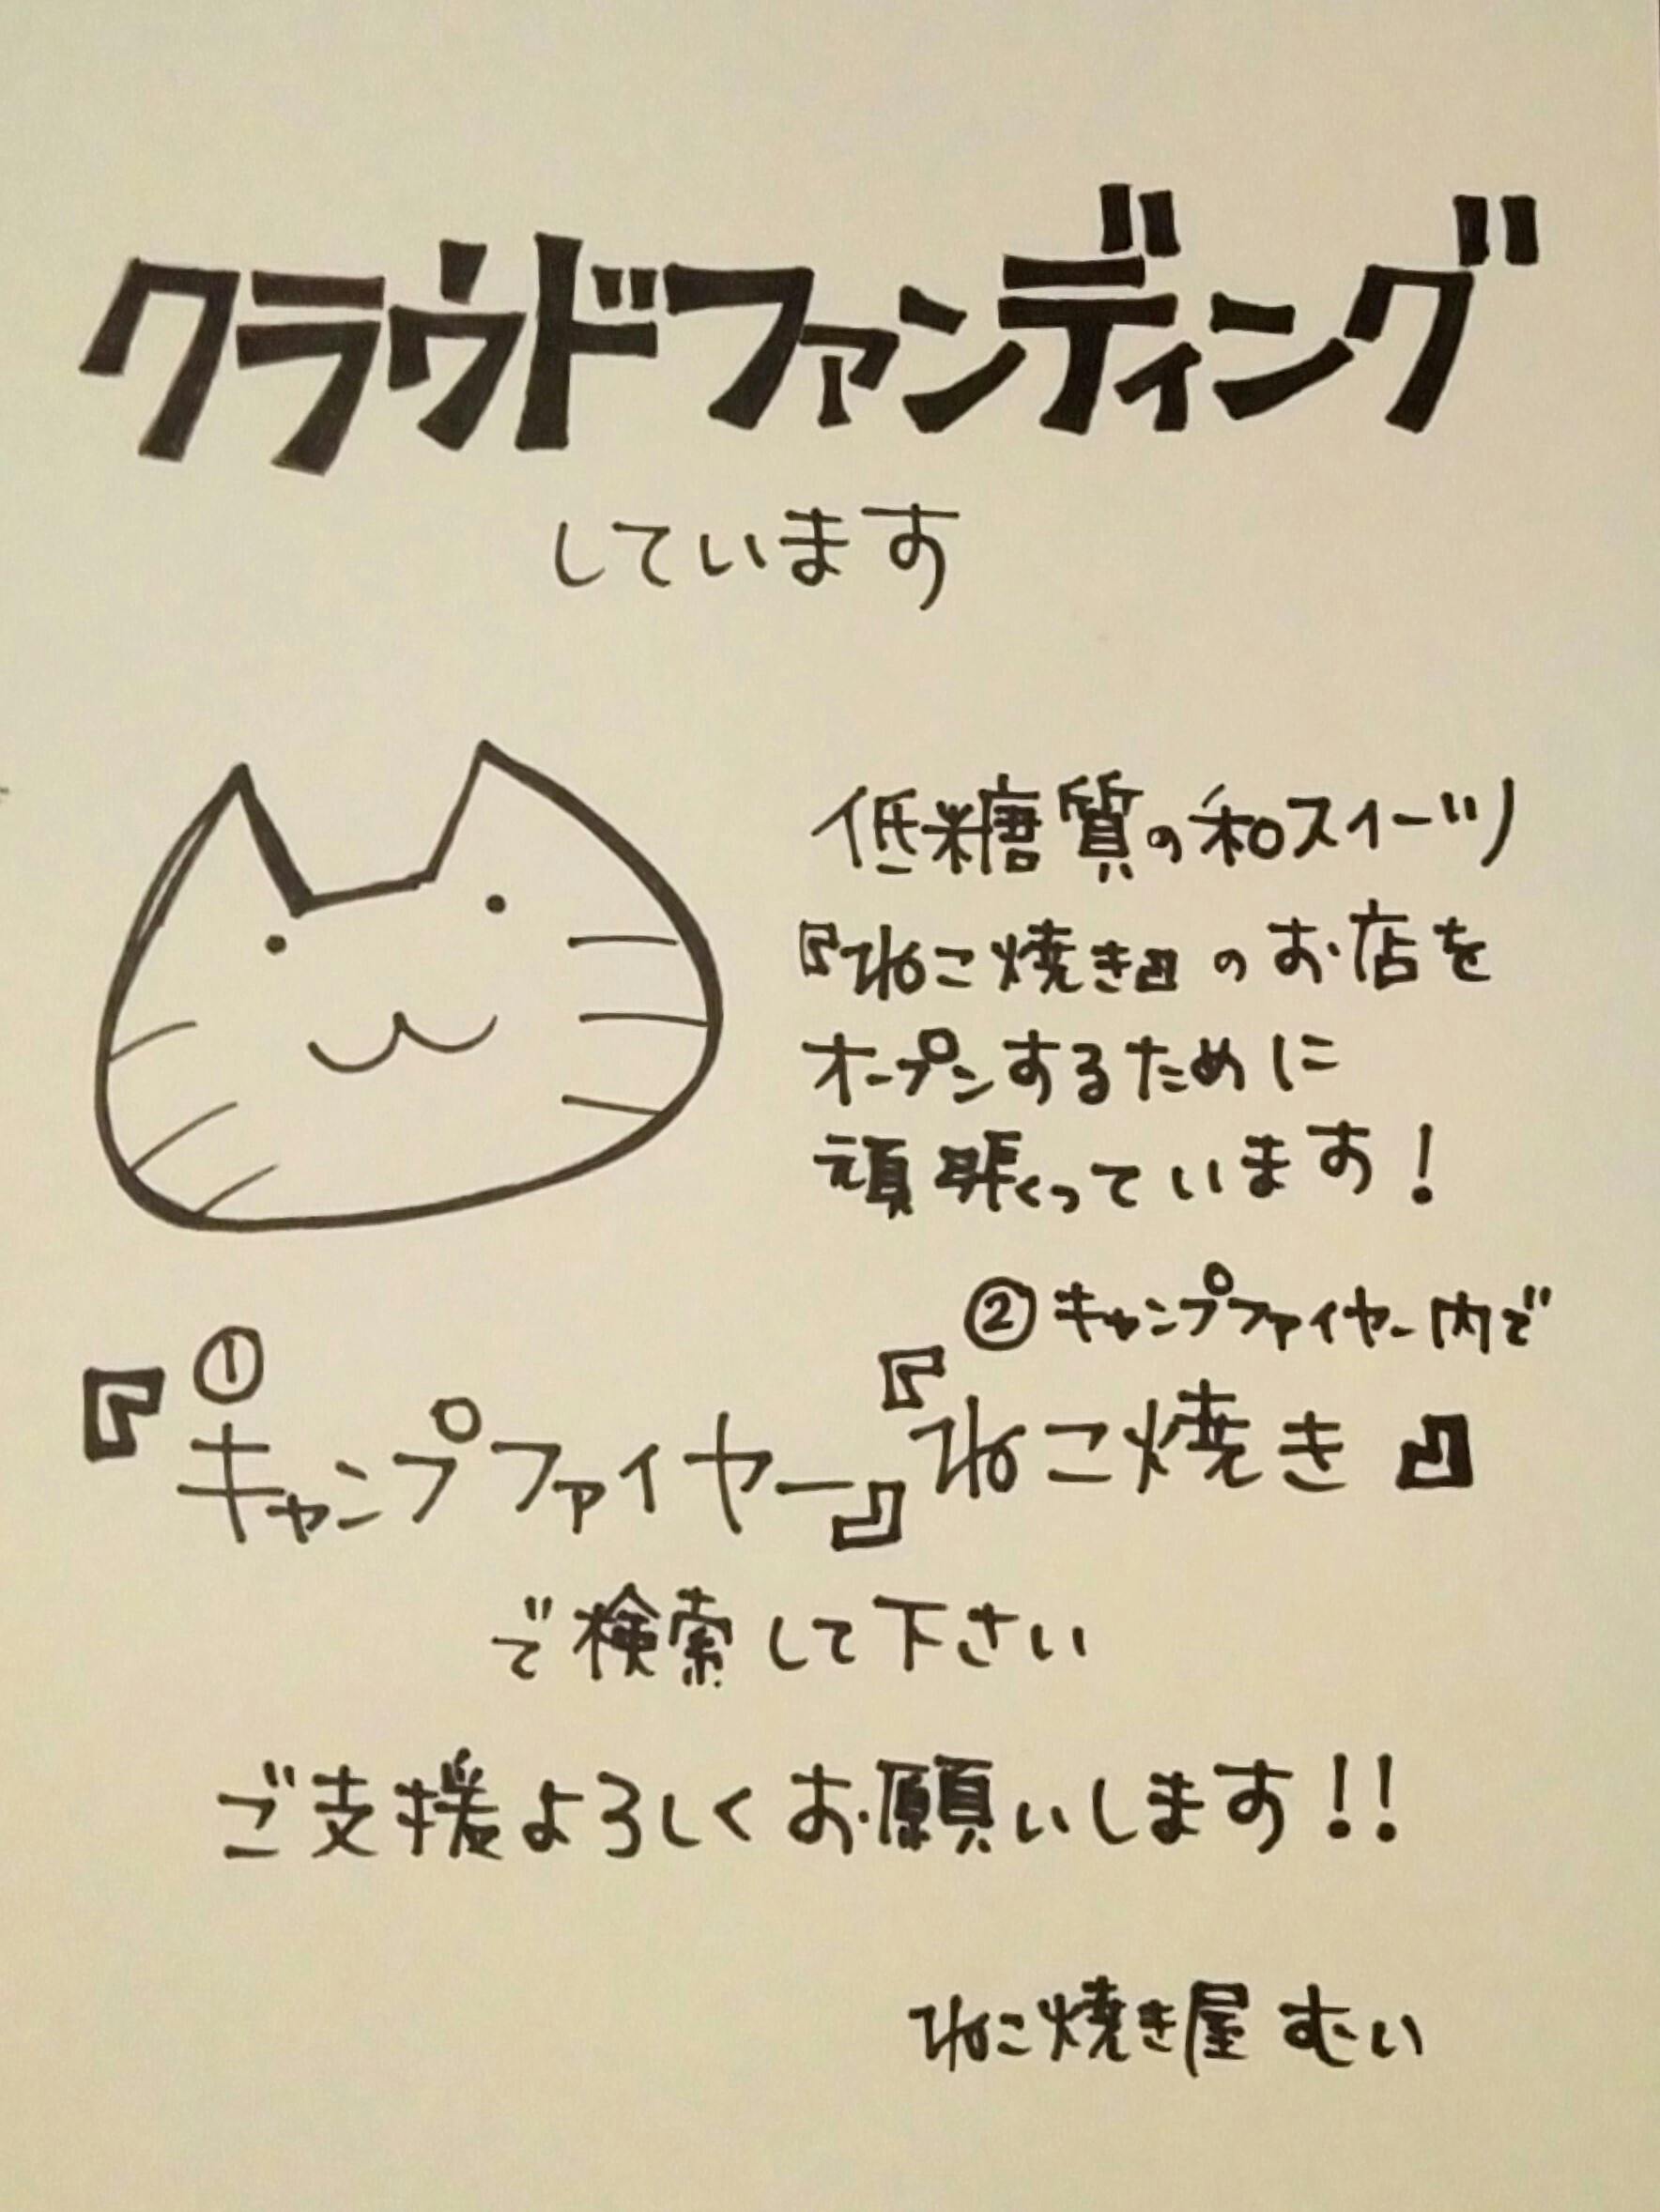 クラウドファンディング
しています
低糖質の和スイーツ
『ねこ焼き』のお店を
オープンするために
頑張っています!
①
『キャンプファイヤー』
②キャンプファイヤー内で
『ねこ焼き』
で検索して下さい
ご支援よろしくお願いします!!
ねこ焼き屋 むい